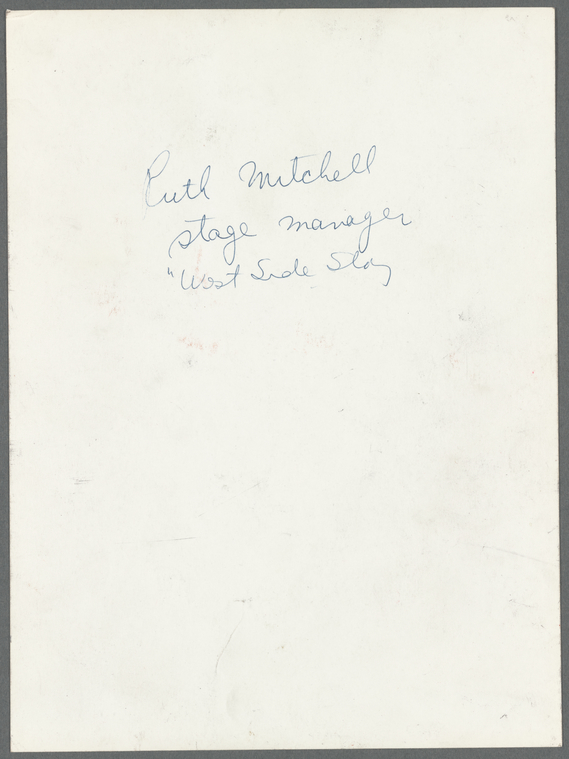 Ruth Mitchell
stage manager
"West Side Story